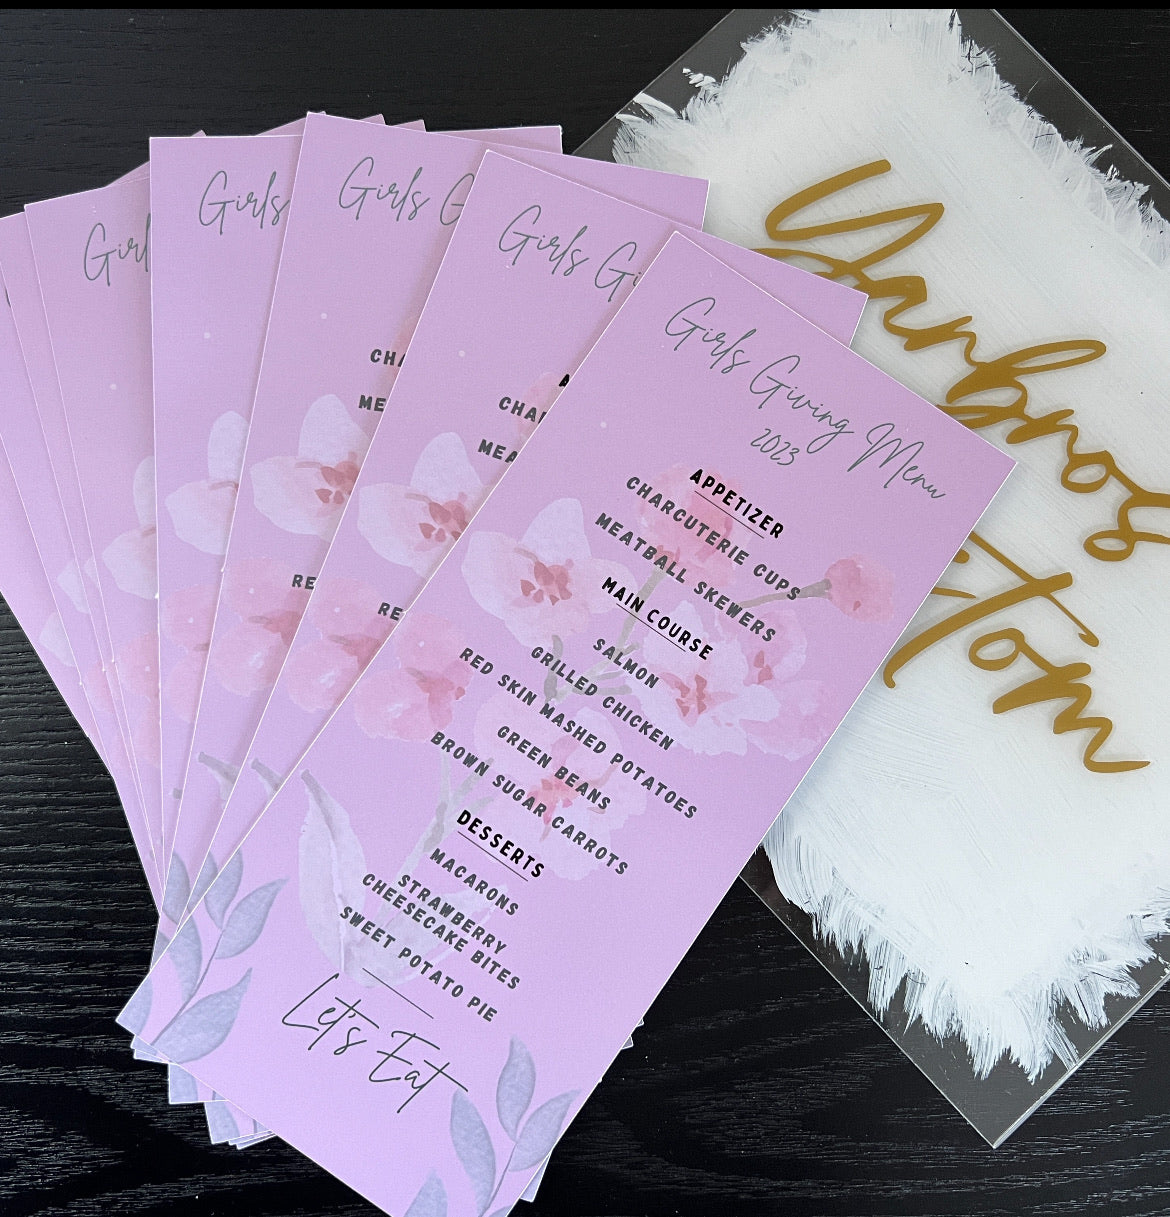 Girls Giving Menu
2023
APPETIZER
CHARCUTERIE CUPS
MEATBALL SKEWERS
MAIN COURSE
SALMON
GRILLED CHICKEN
RED SKIN MASHED POTATOES
GREEN BEANS
BROWN SUGAR CARROTS
DESSERTS
MACARONS
STRAWBERRY
CHEESECAKE BITES
SWEET POTATO PIE
Let's Eat
Girls Gi
A
CHAR
MEA
RE
Girls G
CHA
ME
RE
Girls
Girl
Yarbros
Tom